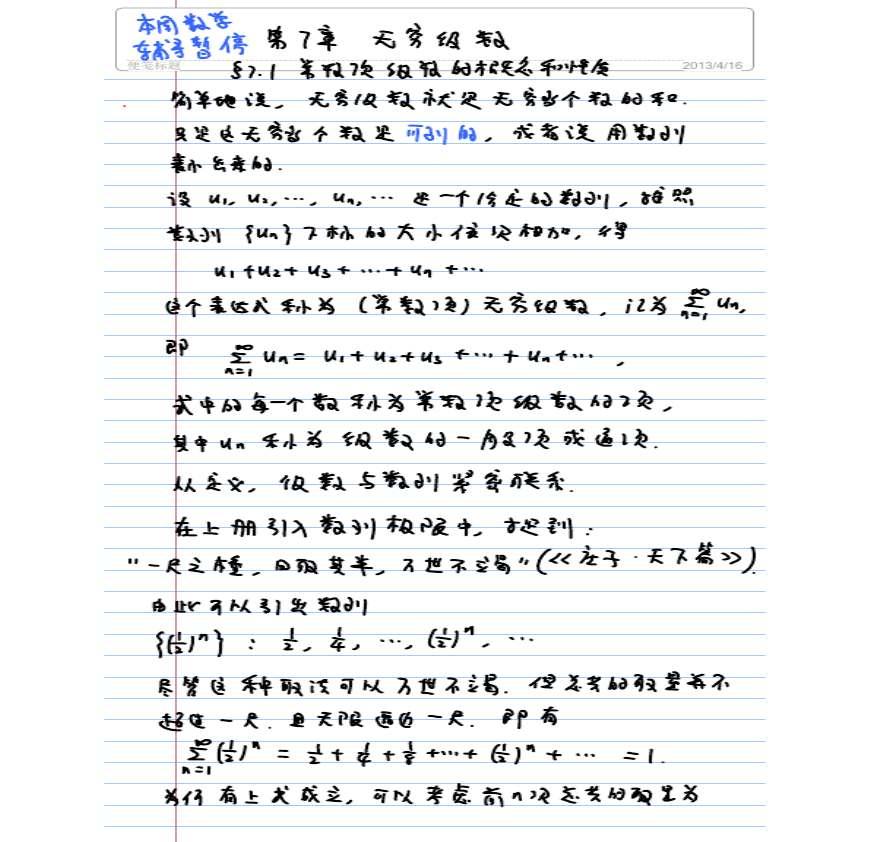 本周数学
辅导暂停
第7章 无穷级数
便笺标题
2013/4/16
§7.1 常数项级数的概念和性质
简单地说，无穷级数就是无穷当个数的和.
只是这无穷当个数是可列的，或者说用数列
表示出来的.
设 u₁, u₂, …, uₙ, … 是一个给定的数列，按照
数列 {uₙ} 下标的大小依次相加，得
u₁+u₂+u₃+…+uₙ+…
这个表达式称为（常数项）无穷级数，记为 ∑_{n=1}^{∞} uₙ,
即 ∑_{n=1}^{∞} uₙ = u₁+u₂+u₃+…+uₙ+…，
式中的每一个数称为常数项级数的项，
其中 uₙ 称为级数的一般项或通项.
从定义，级数与数列紧密联系.
在上册引入数列极限中，提到：
"一尺之棰，日取其半，万世不竭"(《庄子·天下篇》).
由此可以引出数列
{(1/2)ⁿ} : 1/2, 1/4, …, (1/2)ⁿ, …
尽管这种取法可以万世不竭. 但总共的取量并不
超过一尺. 且无限逼近一尺. 即有
∑_{n=1}^{∞} (1/2)ⁿ = 1/2 + 1/4 + 1/8 + … + (1/2)ⁿ + … = 1.
为何有上式成立，可以考虑前n项总共的取量为